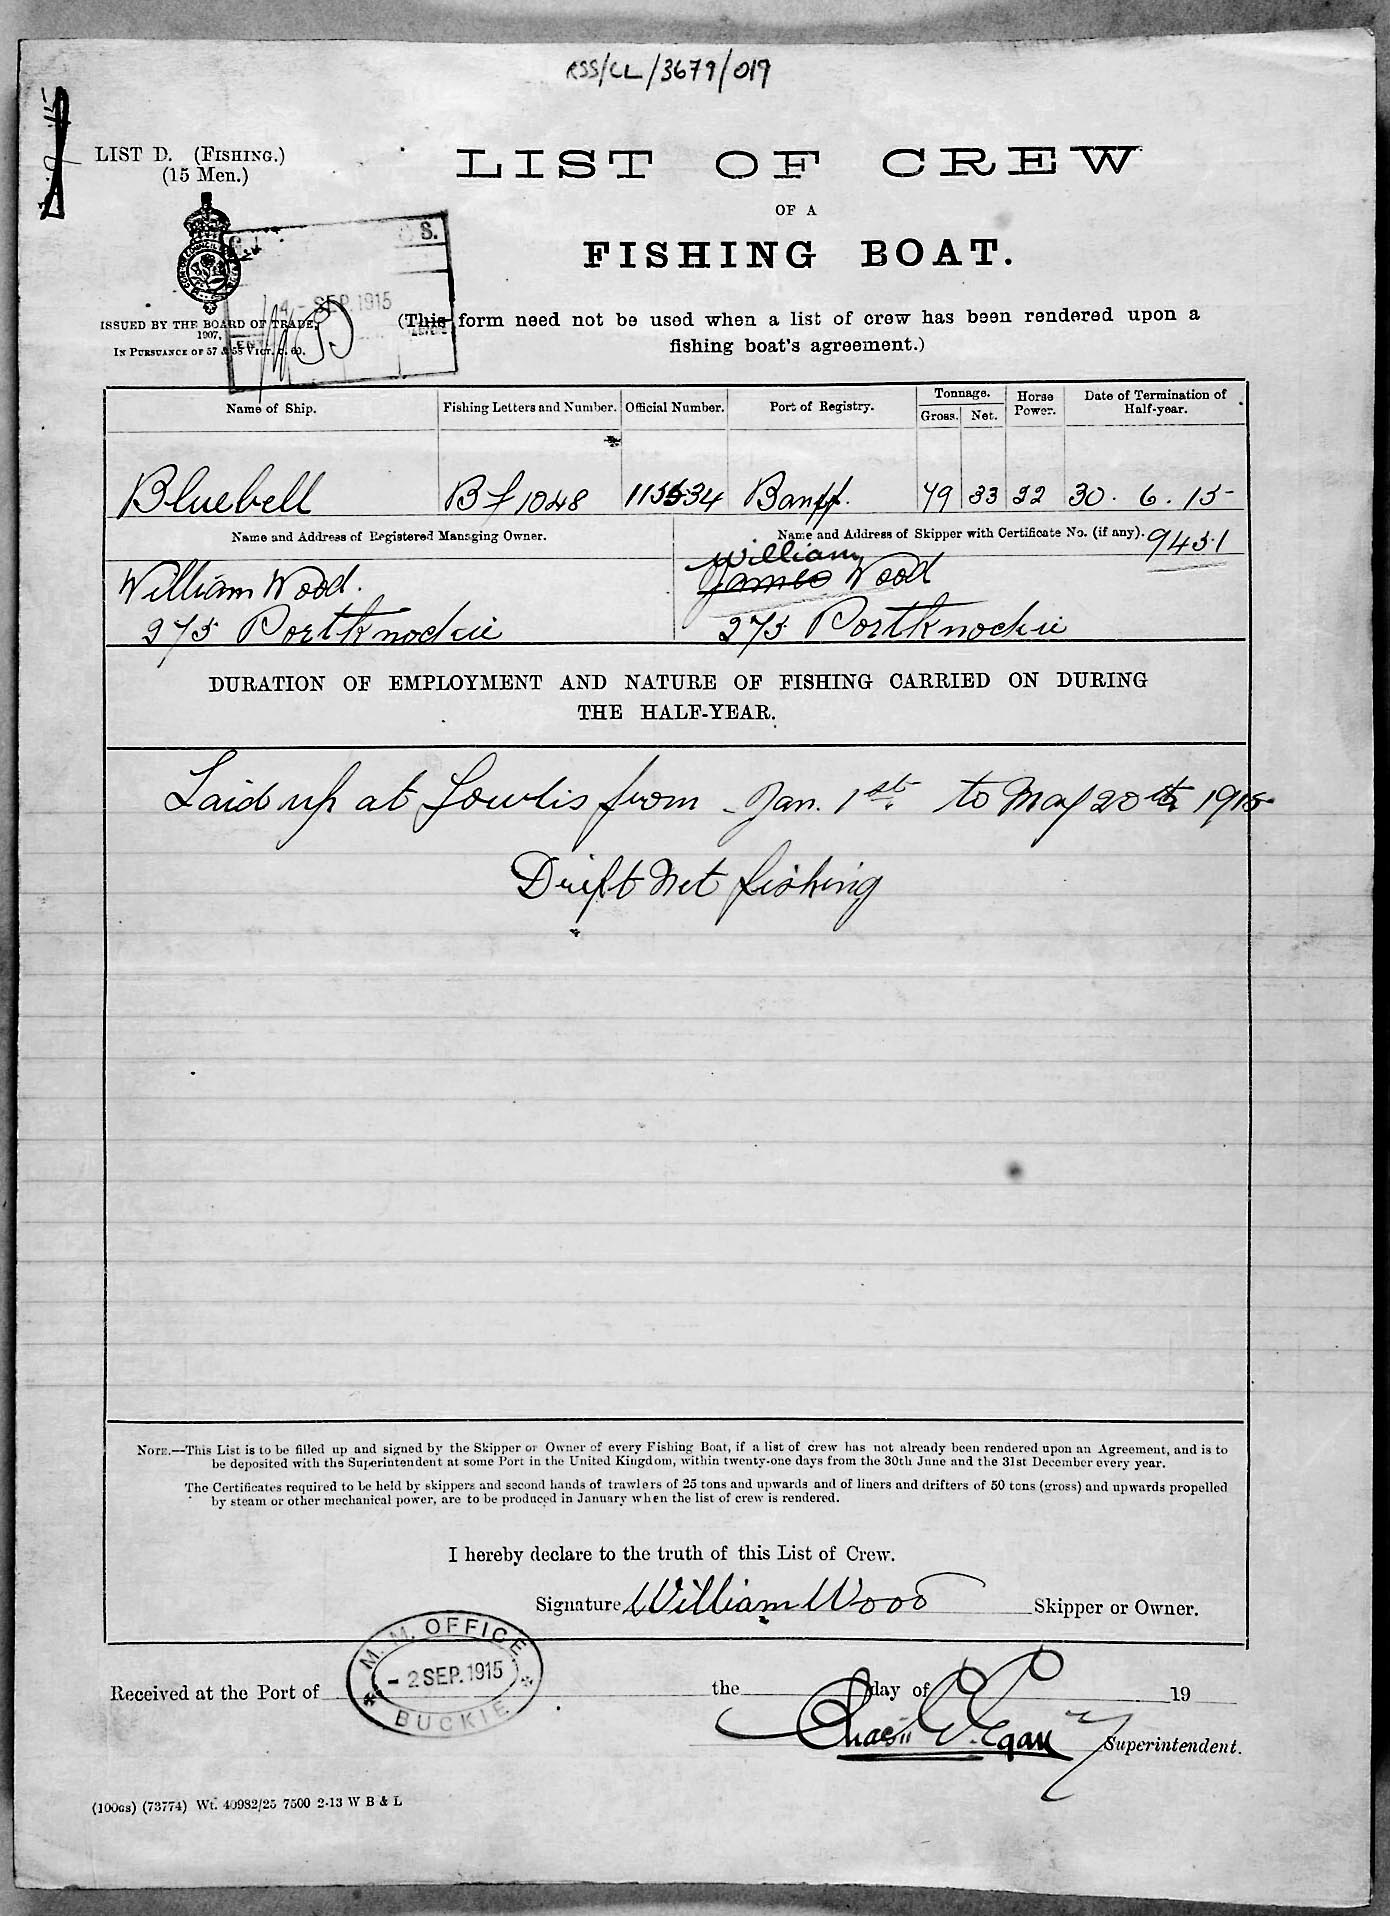 RSS/CL/3679/019
LIST D. (FISHING.)
(15 Men.)
LIST OF CREW
OF A
FISHING BOAT.
S.
4 - SEP. 1915
ISSUED BY THE BOARD OF TRADE,
1907,
IN PURSUANCE OF 57 & 58 VICT. C. 60.
(This form need not be used when a list of crew has been rendered upon a
fishing boat's agreement.)
Name of Ship. Fishing Letters and Number. Official Number. Port of Registry. Tonnage. Gross. Net. Horse Power. Date of Termination of Half-year.
Bluebell Bf 1048 115534 Banff. 79 33 32 30. 6. 15
Name and Address of Registered Managing Owner. Name and Address of Skipper with Certificate No. (if any). 9451
William
William Wood. James Wood
275 Portknockie 275 Portknockie
DURATION OF EMPLOYMENT AND NATURE OF FISHING CARRIED ON DURING
THE HALF-YEAR.
Laid up at from Jan. 1st to May 20th 1915
Drift Net fishing
NOTE.—This List is to be filled up and signed by the Skipper or Owner of every Fishing Boat, if a list of crew has not already been rendered upon an Agreement, and is to
be deposited with the Superintendent at some Port in the United Kingdom, within twenty-one days from the 30th June and the 31st December every year.
The Certificates required to be held by skippers and second hands of trawlers of 25 tons and upwards and of liners and drifters of 50 tons (gross) and upwards propelled
by steam or other mechanical power, are to be produced in January when the list of crew is rendered.
I hereby declare to the truth of this List of Crew.
Signature William Wood Skipper or Owner.
M. M. OFFICE
- 2 SEP. 1915
BUCKIE
Received at the Port of the day of 19
Superintendent.
(100GS) (73774) Wt. 40982/25 7500 2-13 W B & L